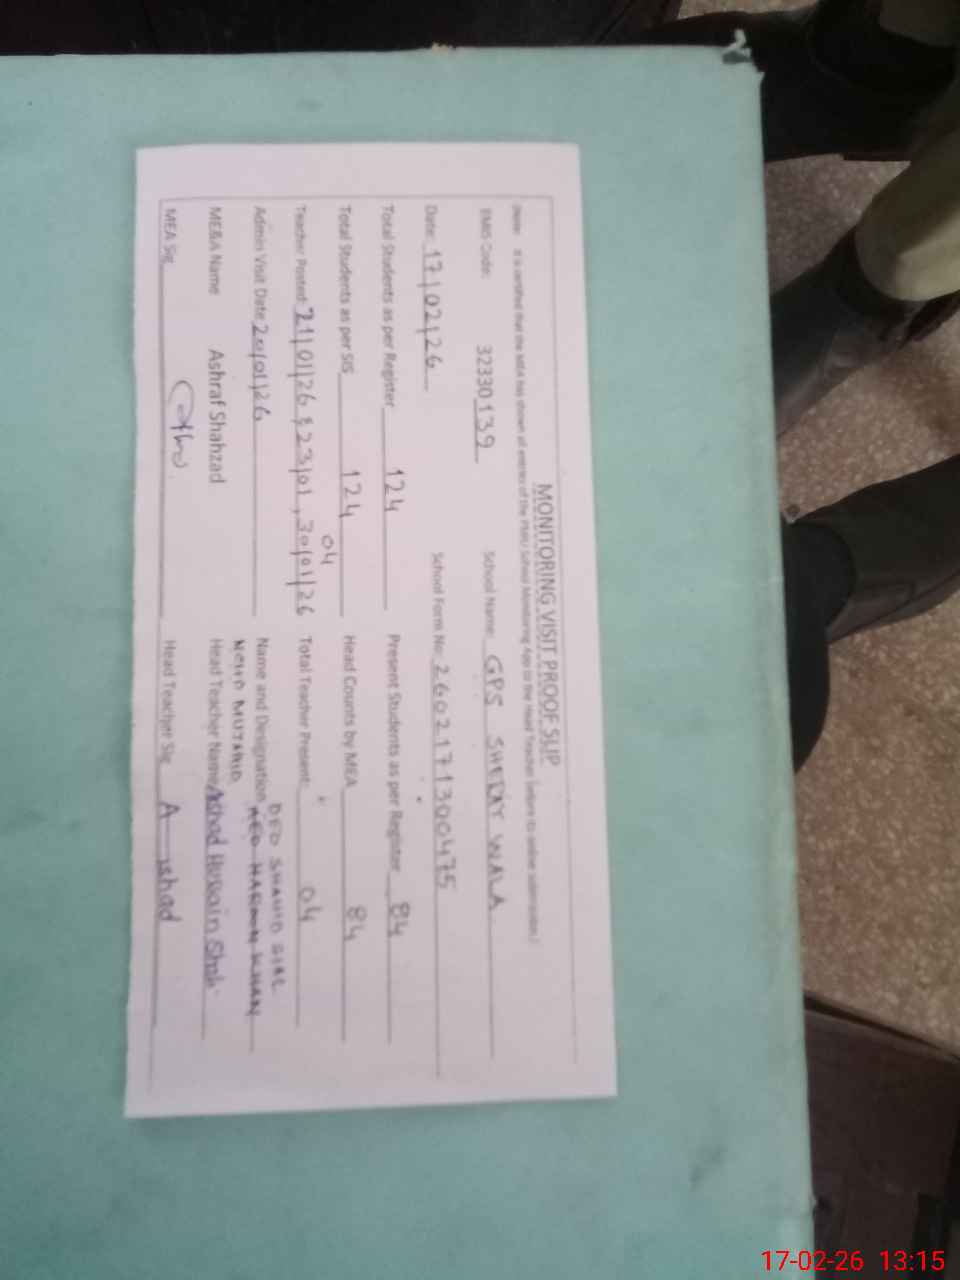 MONITORING VISIT PROOF SLIP
Note: It is certified that the MEA has shown all entries of the PMIU School Monitoring App to the Head Teacher before its online submission.
EMIS Code: 32330139 School Name: GPS SHERAY WALA
Date: 17/02/26 School Form No: 2602171300475
Total Students as per Register 124 Present Students as per Register 84
Total Students as per SIS 124 Head Counts by MEA 84
Teacher Posted: 21/01/26 & 23/01, 30/01/26 04 Total Teacher Present: 04
DEO SHAHID GIAL
Admin Visit Date 20/01/26 Name and Designation AEO HAROON KHAN
ME&A Name Ashraf Shahzad Head Teacher Name Arshad Hussain Shah
MEA Sig Head Teacher Sig Arshad
17-02-26 13:15